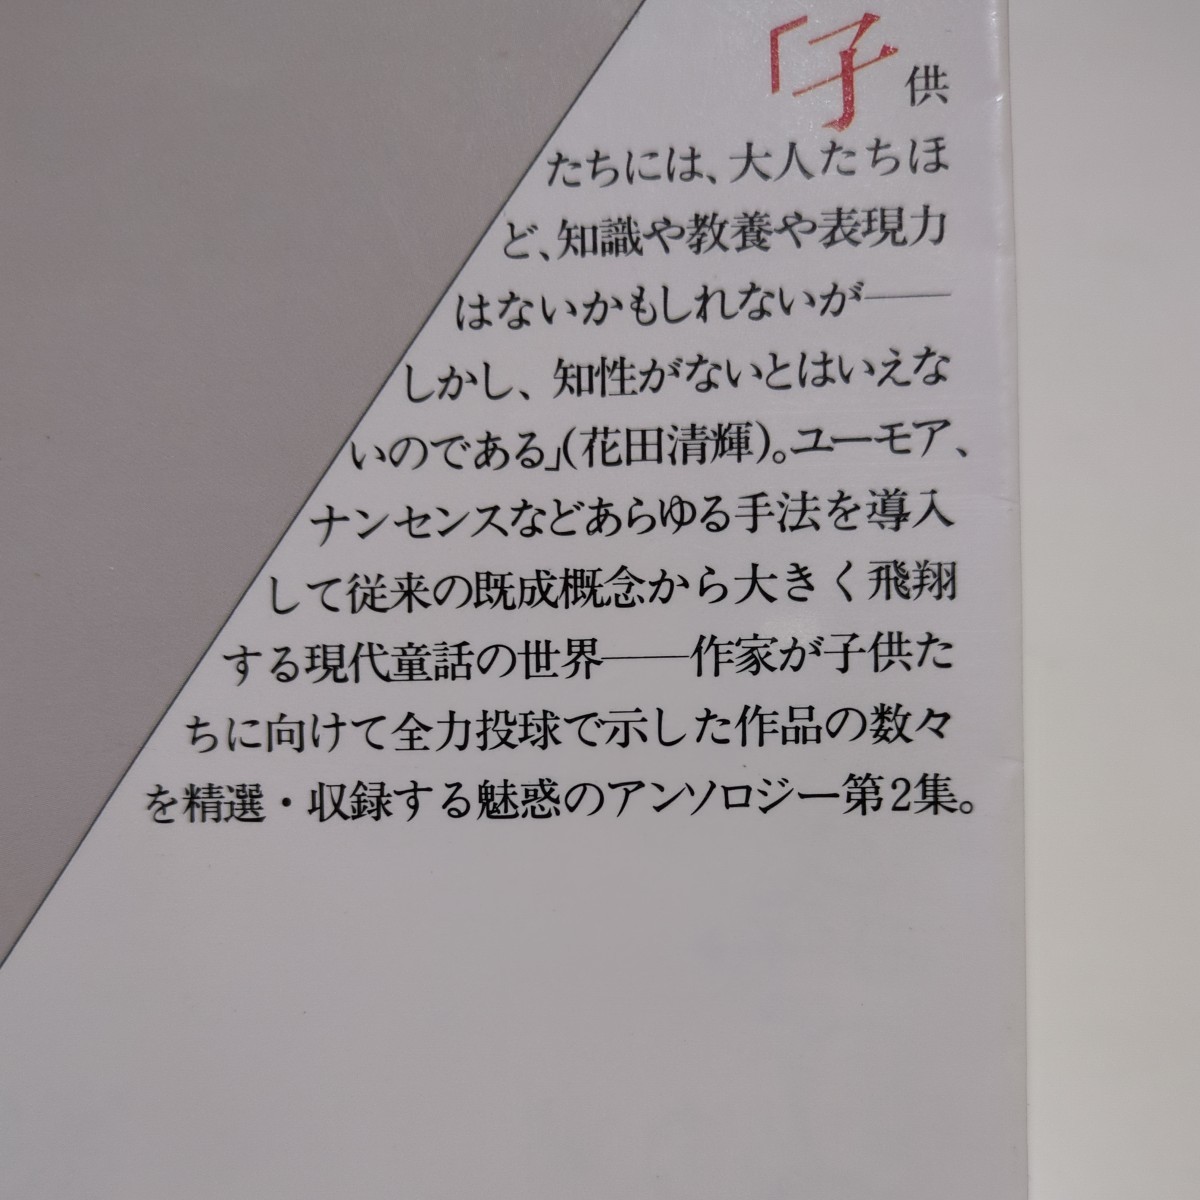 「子供
たちには、大人たちほ
ど、知識や教養や表現力
はないかもしれないが──
しかし、知性がないとはいえな
いのである」(花田清輝)。ユーモア、
ナンセンスなどあらゆる手法を導入
して従来の既成概念から大きく飛翔
する現代童話の世界──作家が子供た
ちに向けて全力投球で示した作品の数々
を精選・収録する魅惑のアンソロジー第2集。